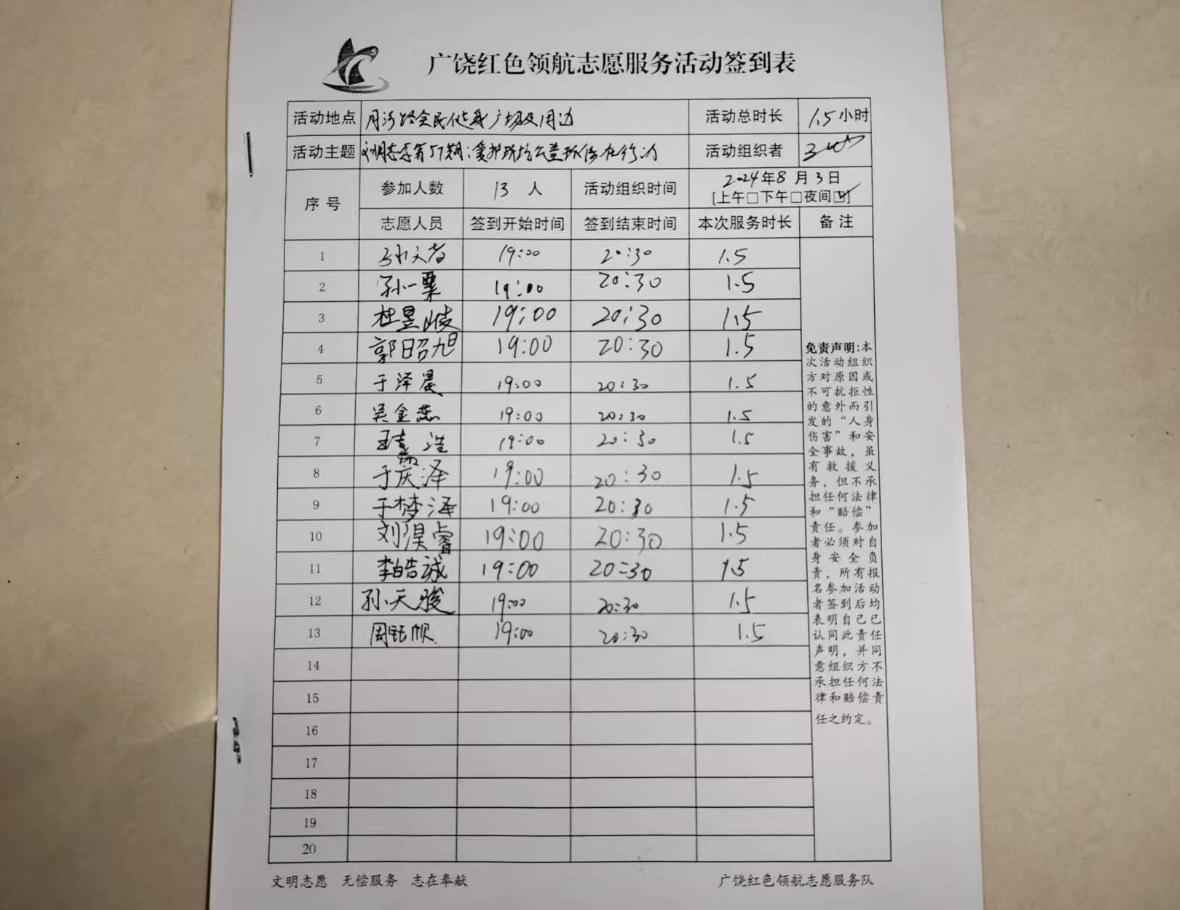 广饶红色领航志愿服务活动签到表
活动地点 月河路全民健身广场及周边 活动总时长 1.5小时
活动主题 活动组织者
序号 参加人数 13 人 活动组织时间 2024年8月3日
[上午□下午□夜间☑]
志愿人员 签到开始时间 签到结束时间 本次服务时长 备注
1 孙文者 19:00 20:30 1.5
2 孙一粟 19:00 20:30 1.5
3 杜昱岐 19:00 20:30 1.5
4 郭昭旭 19:00 20:30 1.5
5 于泽晨 19:00 20:30 1.5
6 吴金蕊 19:00 20:30 1.5
7 王嘉浩 19:00 20:30 1.5
8 于庆泽 19:00 20:30 1.5
9 于梦泽 19:00 20:30 1.5
10 刘淏睿 19:00 20:30 1.5
11 李皓诚 19:00 20:30 1.5
12 孙天骏 19:00 20:30 1.5
13 周钰帜 19:00 20:30 1.5
14
15
16
17
18
19
20
免责声明:本
次活动组织
方对原因或
不可抗拒性
的意外而引
发的“人身
伤害”和安
全事故,虽
有救援义
务,但不承
担任何法律
和“赔偿”
责任。参加
者必须对自
身安全负
责,所有报
名参加活动
者签到后均
表明自己已
认同此责任
声明,并同
意组织方不
承担任何法
律和赔偿责
任之约定。
文明志愿 无偿服务 志在奉献 广饶红色领航志愿服务队